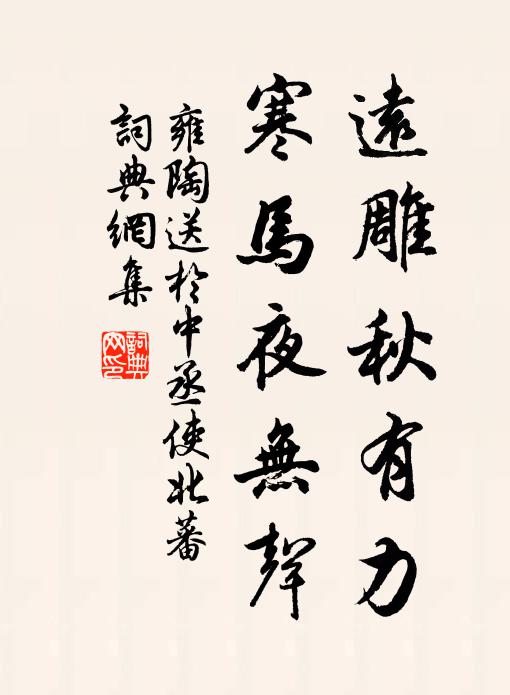 遠雕秋有力
寒馬夜無聲
雍陶送於中丞使北蕃
詞典網集
詞典
网印